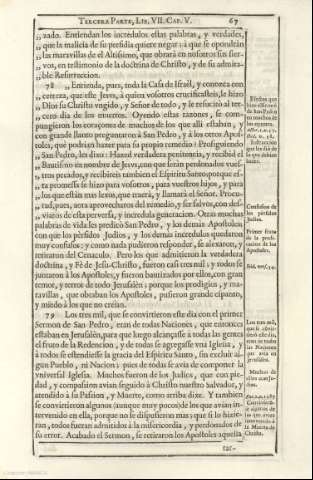 TERCERA PARTE, LIB. VII. CAP. V. 67
„ zado. Entiendan los incredulos estas palabras, y verdades,
„ que la malicia de su perfidia quiere negar: à que se opondràn
„ las maravillas de el Altissimo, que obrarà en nosotros sus sier-
„ vos, en testimonio de la doctrina de Christo, y de su admira-
„ ble Resurreccion.
78 „ Entienda, pues, toda la Casa de Israèl, y conozca con
„ certeza, que este Jesvs, à quien vosotros crucificasteis, le hizo
„ Dios su Christo vngido, y Señor de todo, y le resucitò al ter-
„ cero dia de los muertos. Oyendo estas razones, se com-
pungieron los corazones de muchos de los que alli estaban, y
con grande llanto preguntaron à San Pedro, y à los otros Apos-
toles, què podrian hazer para su propio remedio? Prosiguiendo
„ San Pedro, les dixo: Hazed verdadera penitencia, y recibid el
„ Bautismo en nombre de Jesvs, con que seràn perdonados vues-
„ tros pecados, y recibireis tambien el Espiritu Santo: porque es-
„ ta promessa se hizo para vosotros, para vuestros hijos, y para
„ los que estàn mas lexos, que traerà, y llamarà el Señor. Procu-
„ rad, pues, aora aprovecharos del remedio, y ser salvos, con des-
„ viaros de esta perversa, y incredula generacion. Otras muchas
palabras de vida les predicò San Pedro, y los demàs Apostoles,
con que los perfidos Judios, y los demàs incredulos quedaron
muy confusos; y como nada pudieron responder, se alexaron, y
retiraron del Cenaculo. Pero los que admitieron la verdadera
doctrina, y Fè de Jesu-Christo, fueron casi tres mil; y todos se
juntaron à los Apostoles, y fueron bautizados por ellos, con gran
temor, y terror de todo Jerusalèn: porque los prodigios, y ma-
ravillas, que obraban los Apostoles, pusieron grande espanto,
y miedo à los que no creìan.
79 Los tres mil, que se convirtieron este dia con el primer
Sermon de San Pedro, eran de todas Naciones, que entonces
estaban en Jerusalèn, para que luego alcançasse à todas las gentes
el fruto de la Redencion, y de todas se agregasse vna Iglesia, y
à todos se estendiesse la gracia del Espiritu Santo, sin excluir al-
gun Pueblo, ni Nacion: pues de todas se avia de componer la
vniversal Iglesia. Muchos fueron de los Judios, que con pie-
dad, y compassion avian seguido à Christo nuestro Salvador, y
atendido à su Passion, y Muerte, como arriba dixe. Y tambien
se convirtieron algunos (aunque muy pocos) de los que avian in-
tervenido en ella, porque no se dispusieron mas; que si lo hizie-
ran, todos fueran admitidos à la misericordia, y perdonados de
su error. Acabado el Sermon, se retiraron los Apostoles aquella
tar-
Confusion de
los perfidos
Judios.
Primer fruto
de la predi-
cacion de los
Apostoles.
Los tres mil,
que se convir-
tieron este dia,
eran de todas
las Naciones
que avia en
Jerusalèn.
Muchos de
ellos eran Ju-
dios.